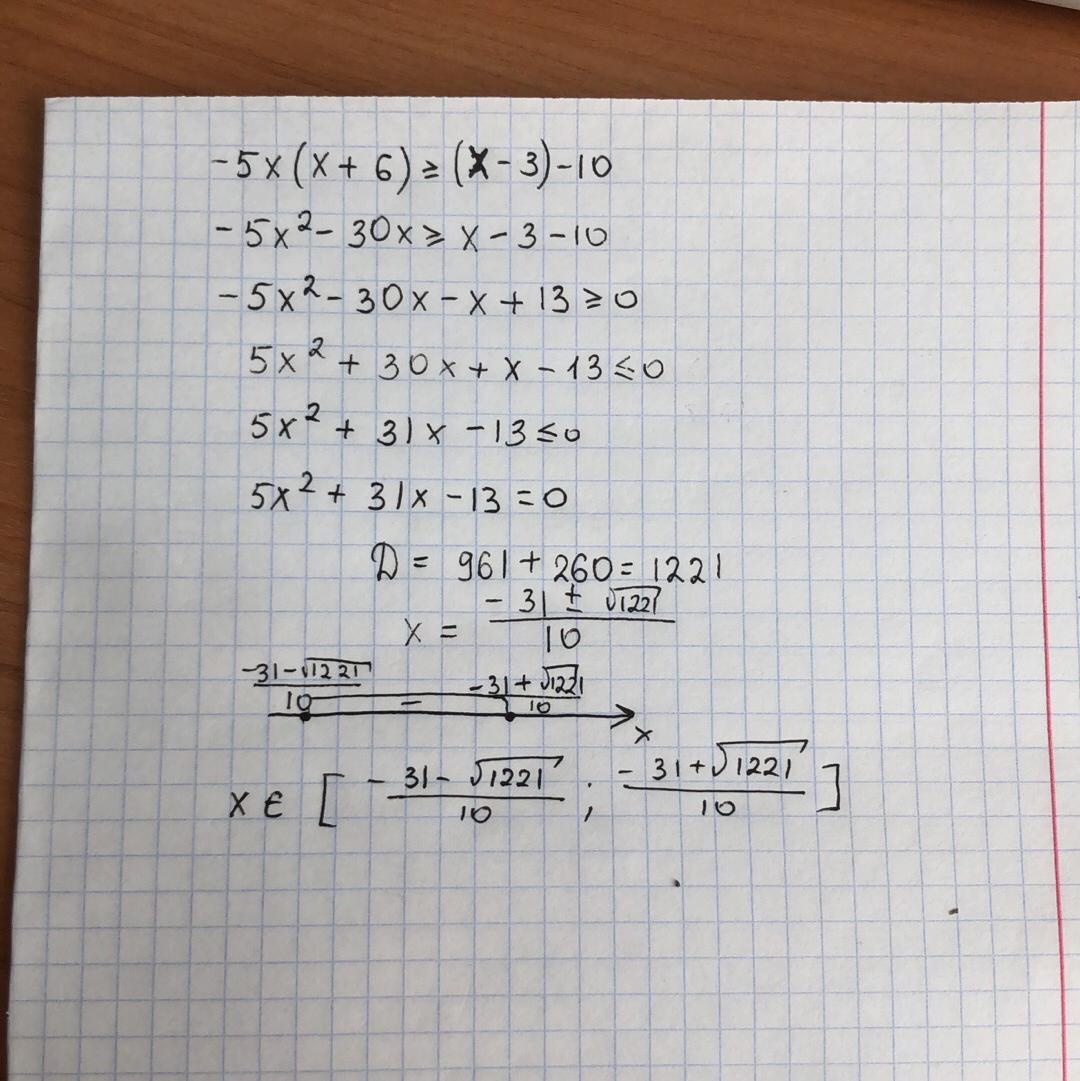 -5x(x + 6) ≥ (x - 3) - 10
-5x² - 30x ≥ x - 3 - 10
-5x² - 30x - x + 13 ≥ 0
5x² + 30x + x - 13 ≤ 0
5x² + 31x - 13 ≤ 0
5x² + 31x - 13 = 0
D = 961 + 260 = 1221
x = (-31 ± √1221)/10
(-31 - √1221)/10 - (-31 + √1221)/10 x
x ∈ [(-31 - √1221)/10 ; (-31 + √1221)/10]